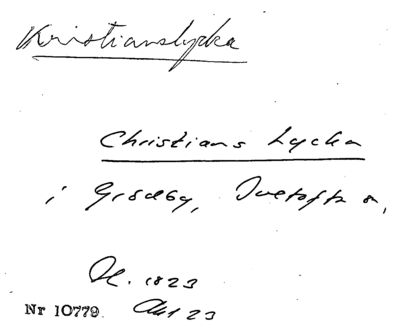 Kristianslycka
Christians Lycka
i Grödby, Ivetofta s,
H. 1823
Nr 10779. Akt 23